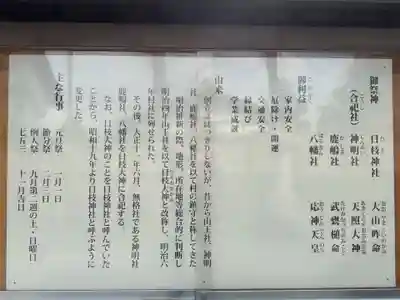 御祭神
日枝神社 大山咋命
(合祀社) 神明社 天照大神
鹿嶋社 武甕槌命
八幡社 応神天皇
御利益
家内安全
厄除け・開運
交通安全
縁結び
学業成就
由来
創立ははっきりしないが、昔から山王社、神明
社、鹿嶋社、八幡社を以て村の鎮守と称してきた
明治維新の際、地形、所在地等総合的に判断し
明治四年山王社を以て日枝大神と改称し、明治六
年村社に列せられた。
その後、大正十二年六月、無格社である神明社
鹿嶋社、八幡社を日枝大神に合祀する。
なお、日枝大神のことを日枝神社と呼んでいた
ことから、昭和十九年より日枝神社と呼ぶように
変更した。
主な行事
元旦祭 一月一日
節分祭 二月三日
例大祭 九月第二週の土・日曜日
七五三 十一月吉日